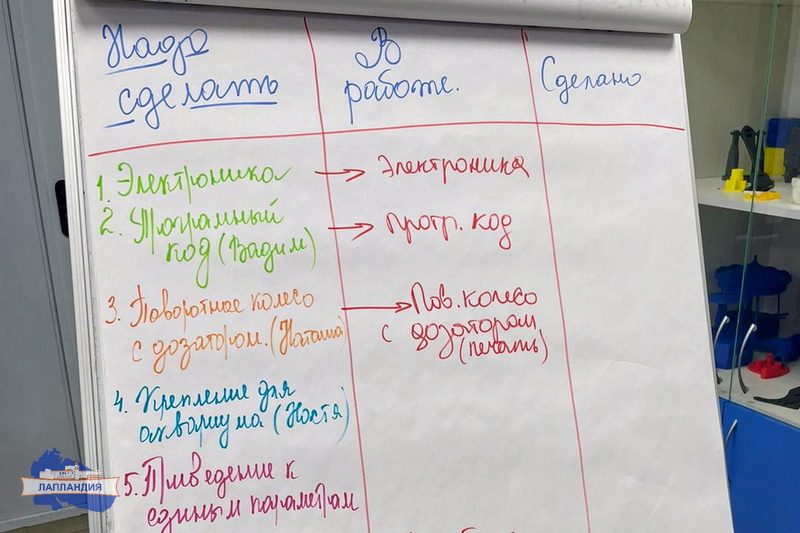 Надо сделать
В работе.
Сделано
1. Электроника → Электроника
2. Програмный код (Вадим) → Прогр. код
3. Поворотное колесо с дозатором. (Наташа) → Пов. колесо с дозатором (печать)
4. Крепление для аквариума (Настя)
5. Приведение к единым параметрам
ЛАПЛАНДИЯ